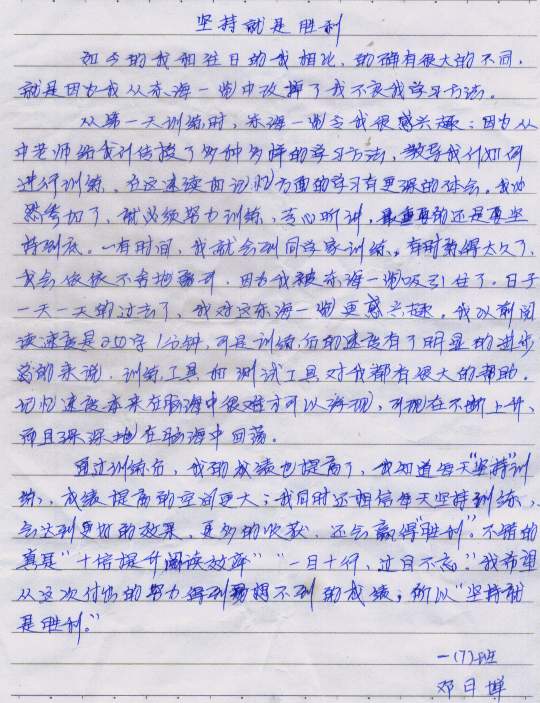 坚持就是胜利
如今的我和往日的我相比,的确有很大的不同,
就是因为我从东海一期中改掉了我不良我学习方法。
从第一天训练时,东海一期令我很感兴趣;因为从
中老师给我们传授了多种多样的学习方法,教导我们如何
进行训练。在这速读而记忆方面的学习有更深的体会。我
然参加了,就必须努力训练,专心听讲,最重要的还是要坚
持到底。一有时间,我就会到同学家训练。有时练得太久了,
我会依依不舍地离开,因为我被东海一期吸引住了。日子
一天一天的过去了,我对这东海一期更感兴趣。我以前阅
读速度是250字/分钟,可是训练后的速度有了明显的进步
总的来说,训练工具和测试工具对我都有很大的帮助。
记忆速度本来在脑海中很难才可以海现,可现在不断上升,
而且深深地在脑海中回荡。
通过训练后,我的成绩也提高了,我知道每天“坚持”训
练,成绩提高的空间更大;我同时还相信每天坚持到训练,
会达到更好的效果,更多的收获,还会赢得“胜利”。不错的
真是“十倍提升阅读效率”“一目十行,过目不忘。”我希望
从这次付出的努力得到意想不到的成绩;所以“坚持就
是胜利。”
一(7)班
邓日